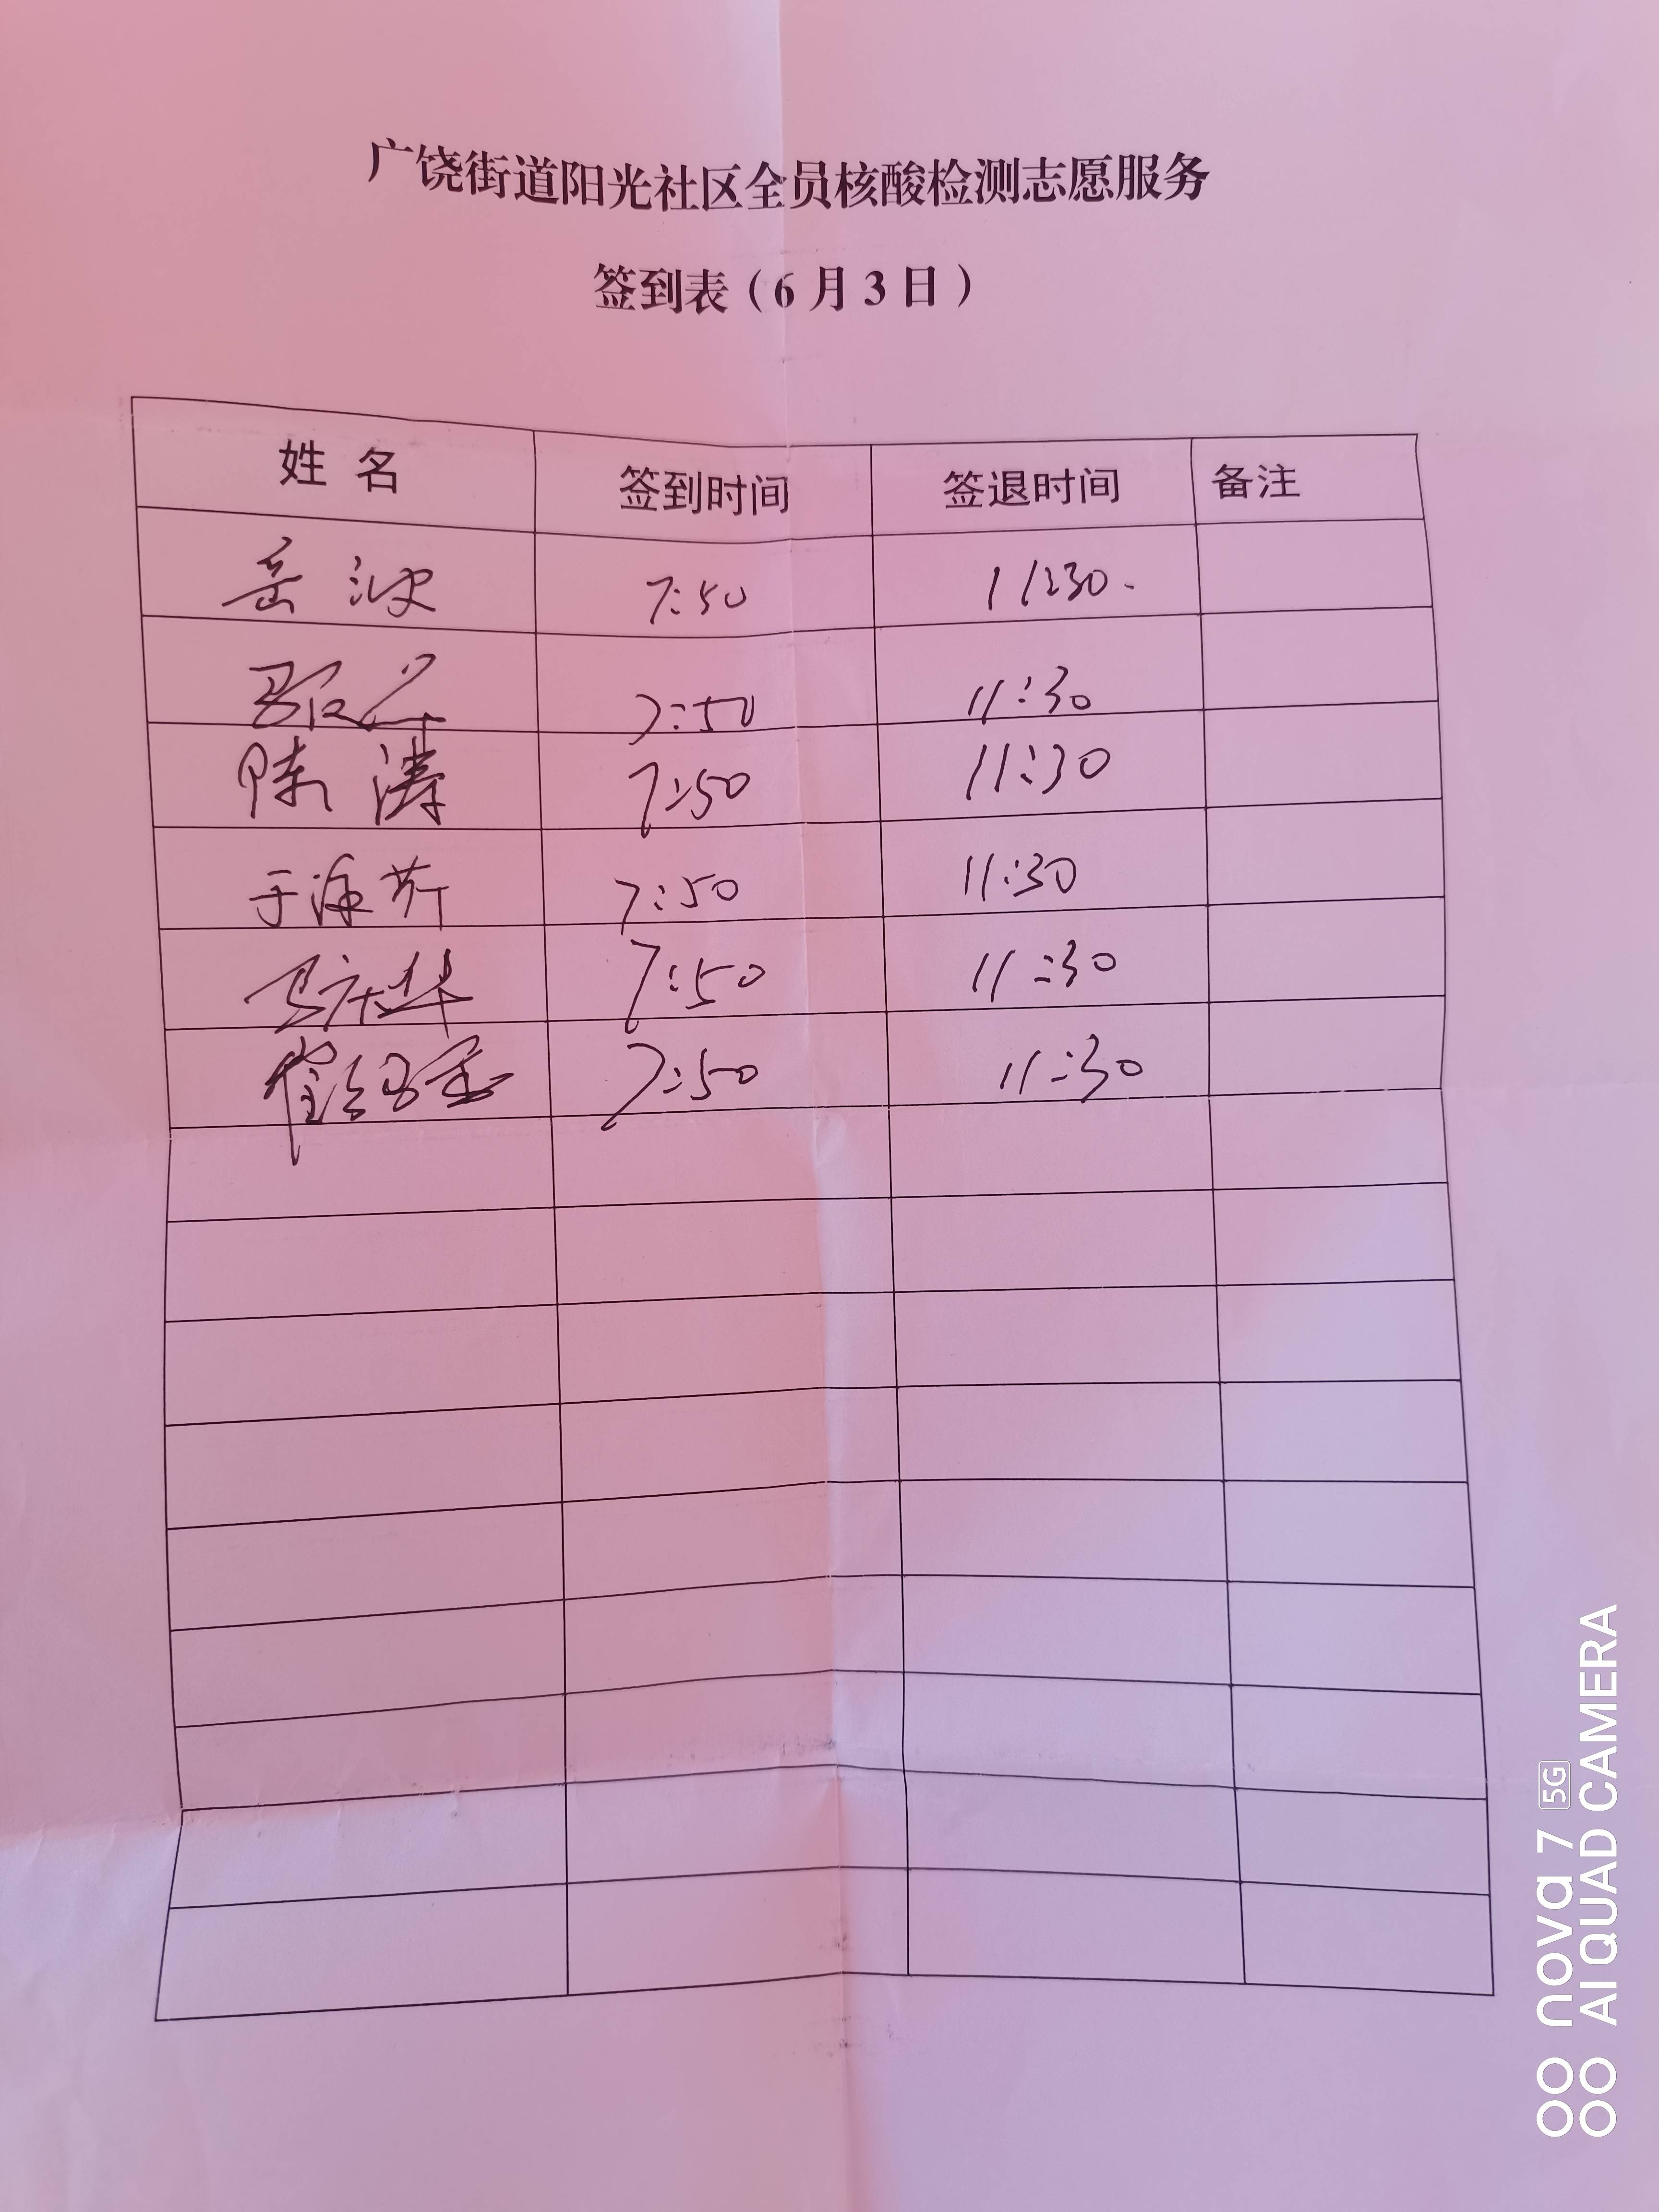 广饶街道阳光社区全员核酸检测志愿服务
签到表（6月3日）
姓 名 签到时间 签退时间 备注
岳 7:50 11:30.
7:50 11:30
陈涛 7:50 11:30
于 7:50 11:30
马庆华 7:50 11:30
崔 7:50 11:30
nova 7 5G
AI QUAD CAMERA